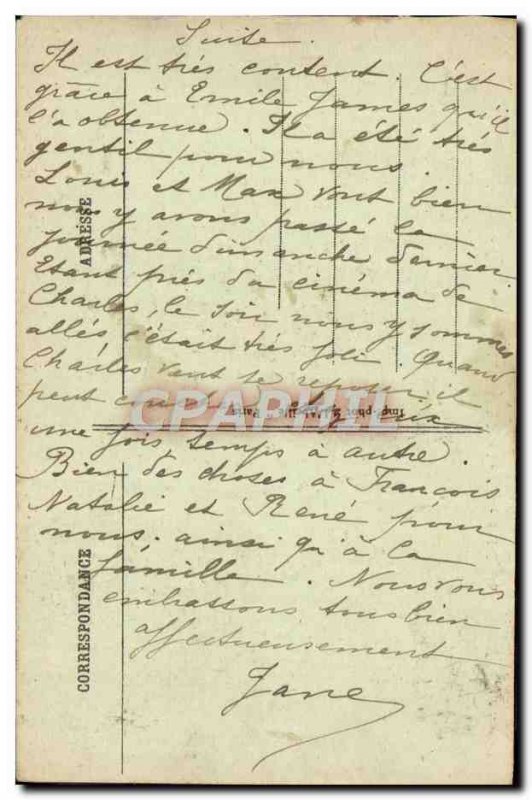 Suite.
Il est très content. C'est
grâce à Emile James qu'il
l'a obtenue. Il a été très
gentil pour nous.
Louis et Max vont bien
nous y avons passé la
journée dimanche dernier.
Etant près du cinéma de
Charles, le soir nous y sommes
allés c'était très joli. Quand
Charles veut se reposer il
peut
une fois temps à autre.
Bien des choses à François
Natalie et René pour
nous. ainsi qu'à la
famille. Nous vous
embrassons tous bien
affectueusement
Jane
ADRESSE
CORRESPONDANCE
Imp-phot Paris
CPAPHIL